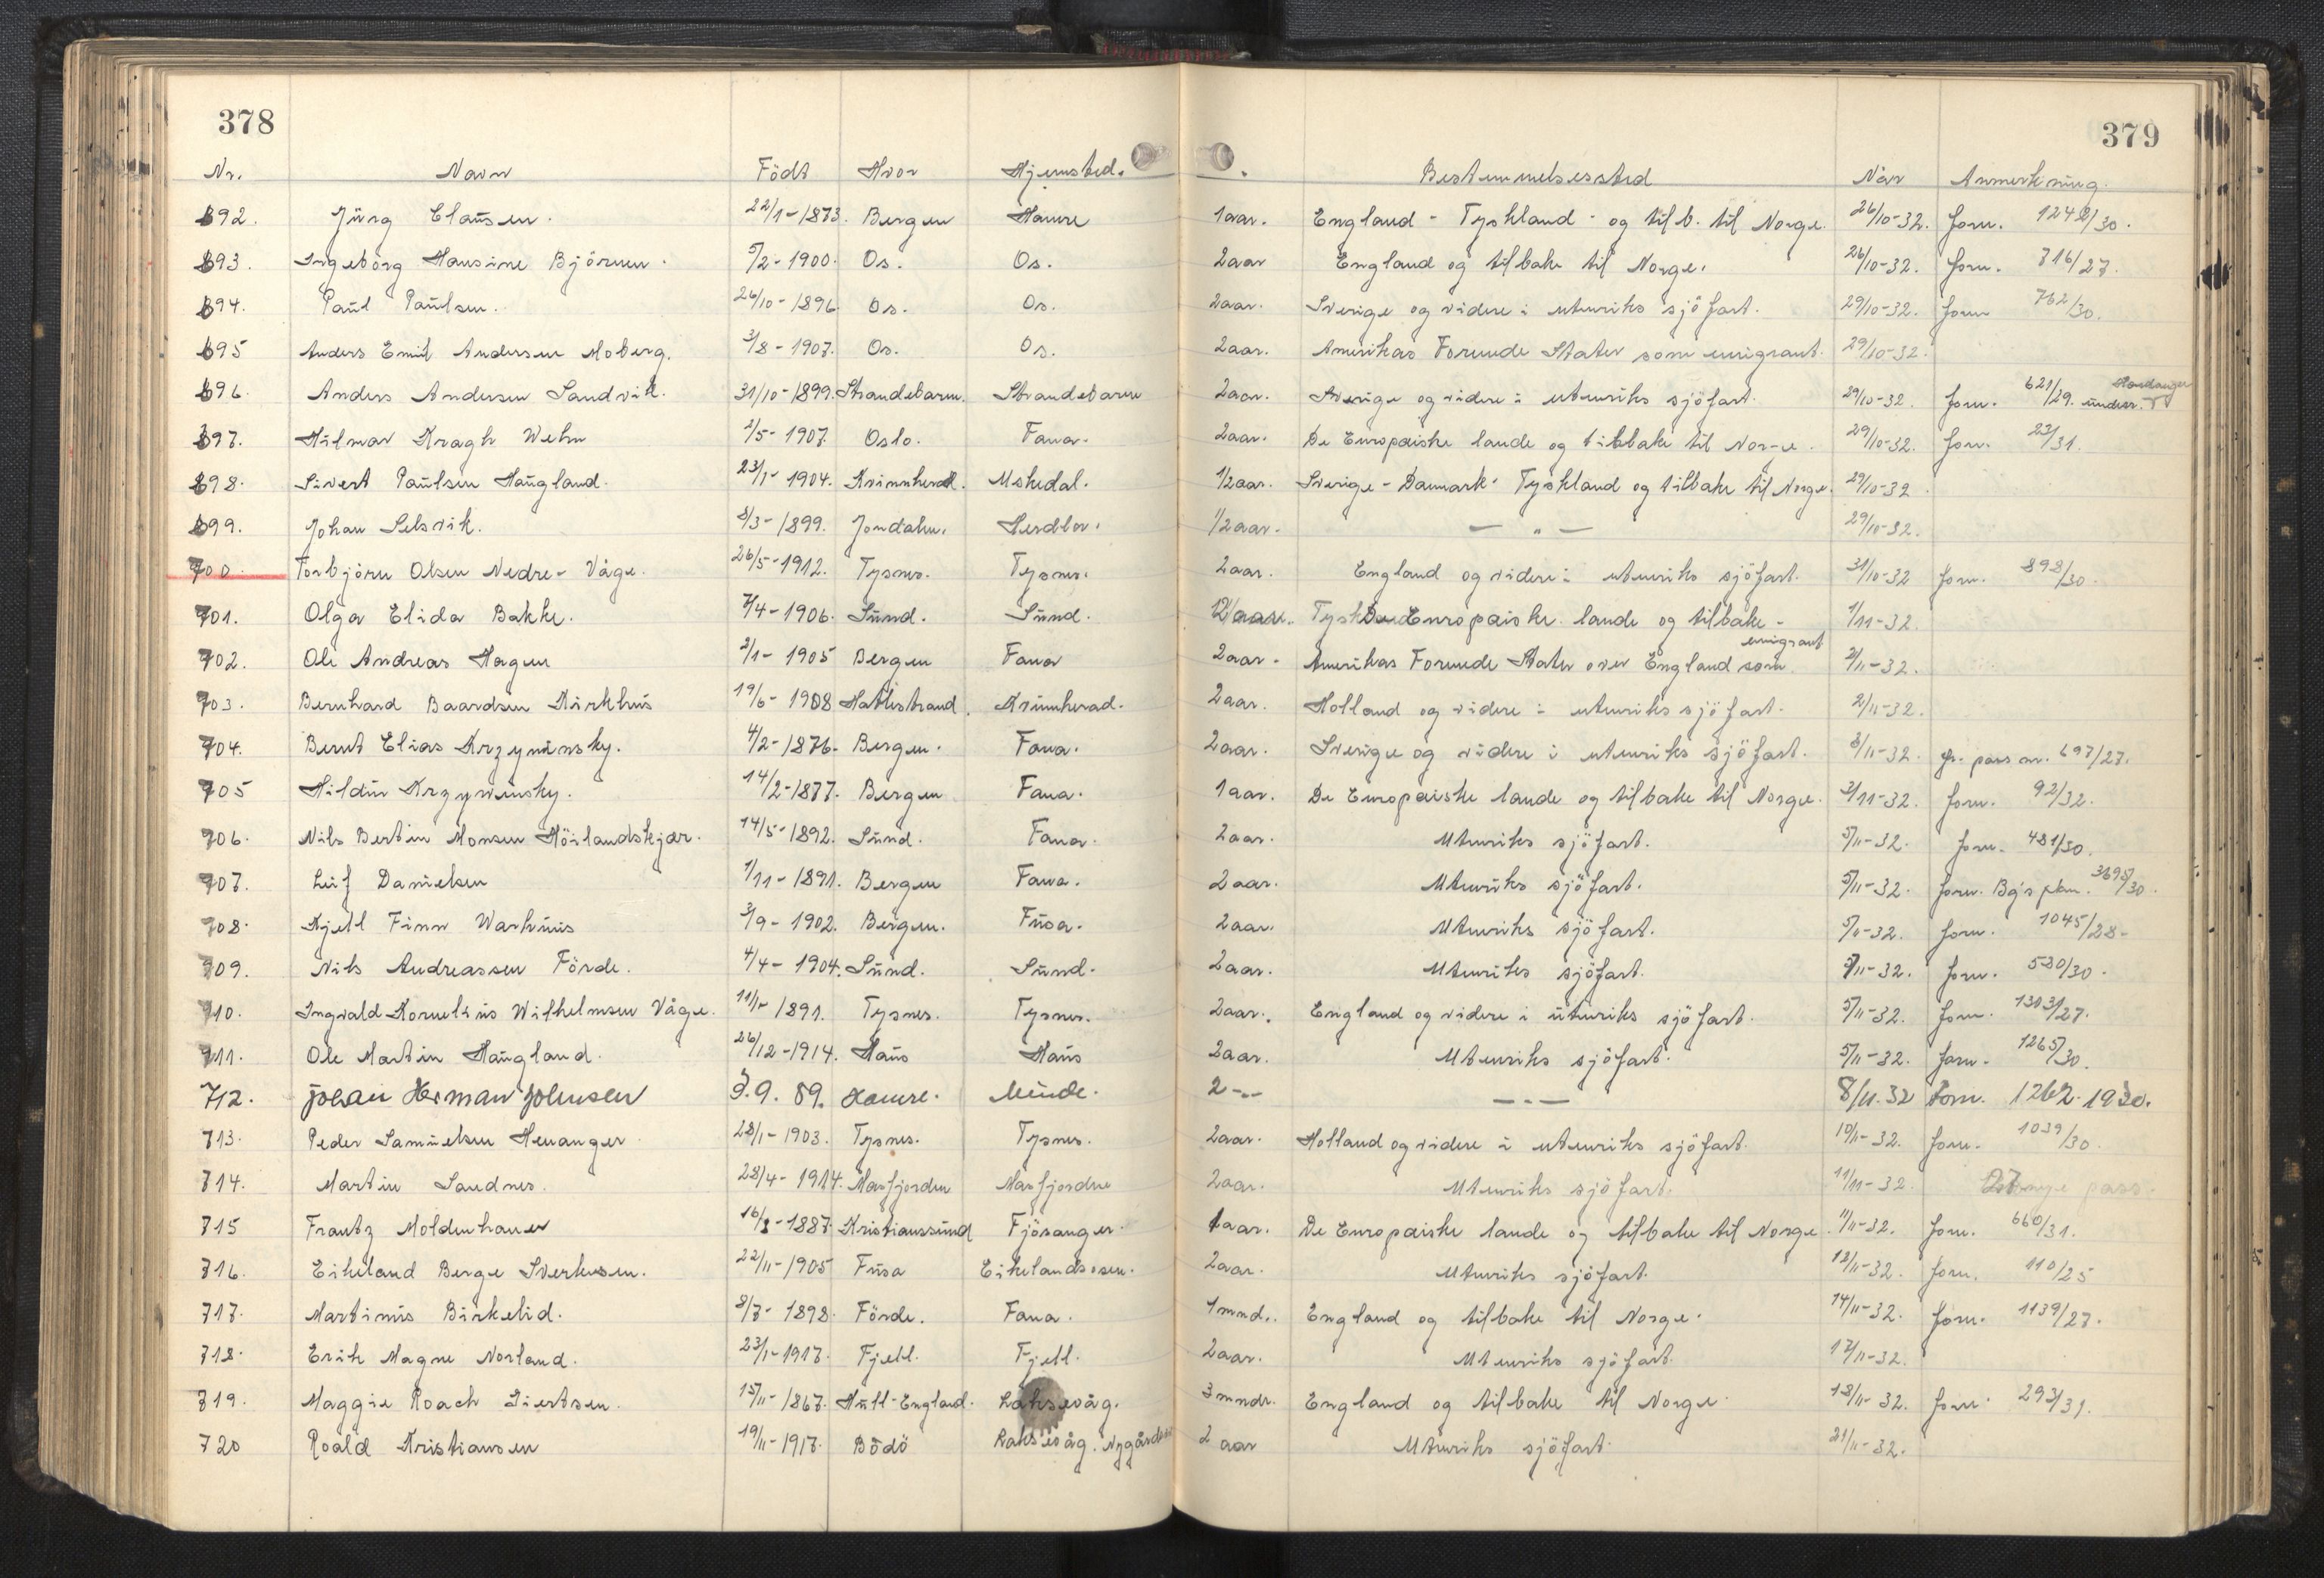 378
379
Nr. Navn Födt Hvor Hjemsted. Bestemmelsessted När Anmerkning.
692. Jürg Claüsen. 22/1-1873. Bergen Hamre 1 aar. England - Tyskland - og tilb. til Norge. 26/10-32. Forn. 1242/30.
693. Ingeborg Hansine Björnen. 5/2-1900. Os. Os. 2 aar England og tilbake til Norge. 26/10-32. forn. 716/27.
694. Paül Paülsen. 26/10-1896. Os. Os. 2aar. Sverige og videre i utenriks sjöfart. 29/10-32. forn 762/30.
695 Anders Emil Andersen Moberg. 3/8-1907. Os. Os. 2aar. Amerikas Forenede Stater som emigrant. 29/10-32.
696. Anders Andersen Sandvik. 31/10-1899. Strandebarm. Strandebarm 2aar. Sverige og videre i utenriks sjöfart. 29/10-32. forn. 621/29. Hardanger
697. Hilmar Kragh Wehn 2/5-1907. Oslo. Fana. 2aar. De Europæiske lande og tilbake til Nor-e. 29/10-32. forn. 23/31.
698. Sivert Paülsen Haügland. 23/1-1904. Kvinnherad. Uskedal. 1/2 aar. Sverige - Danmark - Tyskland og tilbake til Norge. 29/10-32.
699. Johan Selsvik. 8/3-1899. Jondalen. Herdlor. 1/2 aar. — " — 29/10-32.
700. Torbjörn Olsen Nedre-Våge. 26/5-1912. Tysnes. Tysnes. 2aar. England og videre i utenriks sjöfart. 31/10-32 forn. 898/30.
701. Olga Elida Bakke. 7/4-1906. Sünd. Sünd. De Europæiske lande og tilbake - 1/11-32.
702. Ole Andreas Hagen 2/1-1905 Bergen Fana 2aar. Amerikas Forenede Stater over England som emigrant 2/11-32.
703. Bernhard Baardsen Kirkhüs 19/6-1908 Hatlestrand. Kvinnherad. 2aar. Holland og videre i utenriks sjöfart. 2/11-32.
704. Bernt Elias Krzyminsky. 4/2-1876. Bergen. Fana. 2aar. Sverige og videre i utenriks sjöfart. 3/11-32. fr. pass nr. 697/27.
705 Hildür Krzyvinsky. 14/2-1877. Bergen Fana. 1aar. De Europæiske lande og tilbake til Norge. 3/11-32. forn. 92/32.
706. Nils Bertin Monsen Höilandskjær. 14/5-1892. Sünd. Fana. 2aar. Utenriks sjöfart. 5/11-32. forn. 481/30.
707. Leif Danielsen 1/11-1891. Bergen Fana. 2aar. Utenriks sjöfart. 5/11-32. forn. Bg's pkm. 3698/30.
708. Kjell Finn Warhüüs 3/9-1902. Bergen. Füsa. 2aar. Utenriks sjöfart. 5/11-32. forn. 1045/28-
709. Nils Andreassen Förde. 4/4-1904. Sünd. Sünd. 2aar. Utenriks sjöfart. 5/11-32. forn. 530/30.
710. Ingvald Korneliüs Wilhelmsen Våge. 11/1-1891. Tysnes. Tysnes. 2aar. England og videre i ütenriks sjöfart. 5/11-32. forn. 1303/27.
711. Ole Martin Haügland. 26/12-1914. Haüs Haüs 2aar. Utenriks sjöfart. 5/11-32. forn. 1265/30.
712. Johan Herman Johnsen 3.9.89. Hamre. Minde. 2-"- — " — 8/11.32 Forn. 1262.1930.
713. Peder Samüelsen Hevanger 28/1-1903. Tysnes. Tysnes. 2aar. Holland og videre i utenriks sjöfart. 10/11-32. forn. 1039/30.
714. Martin Sandnes. 28/4-1914. Masfjorden Masfjorden 2aar. Utenriks sjöfart. 11/11-32. pass.
715 Frantz Moldenhauer 16/8-1887. Kristianssünd Fjösanger. 1aar. De Europæiske lande og tilbake til Norge. 11/11-32. forn. 660/31.
716. Eikeland Berge Sverkesen. 22/11-1905 Füsa Eikelandsosen. 2aar. Utenriks sjöfart. 12/11-32. forn. 110/25
717. Martinüs Birkelid. 8/7-1898. Förde. Fana. 1mnd.. England og tilbake til Norge. 14/11-32. forn. 1139/27.
718. Erik Magne Norland. 23/1-1917. Fjell. Fjell. 2aar. Utenriks sjöfart. 17/11-32.
719. Maggie Roach Siertsen. 15/11-1867. Hüll-England. Laksevåg. 3 mndr. England og tilbake til Norge. 18/11-32. forn. 293/31.
720 Roald Kristiansen 19/11-1917. Bödö Laksevåg. 2 aar Utenriks sjöfart. 21/11-32.